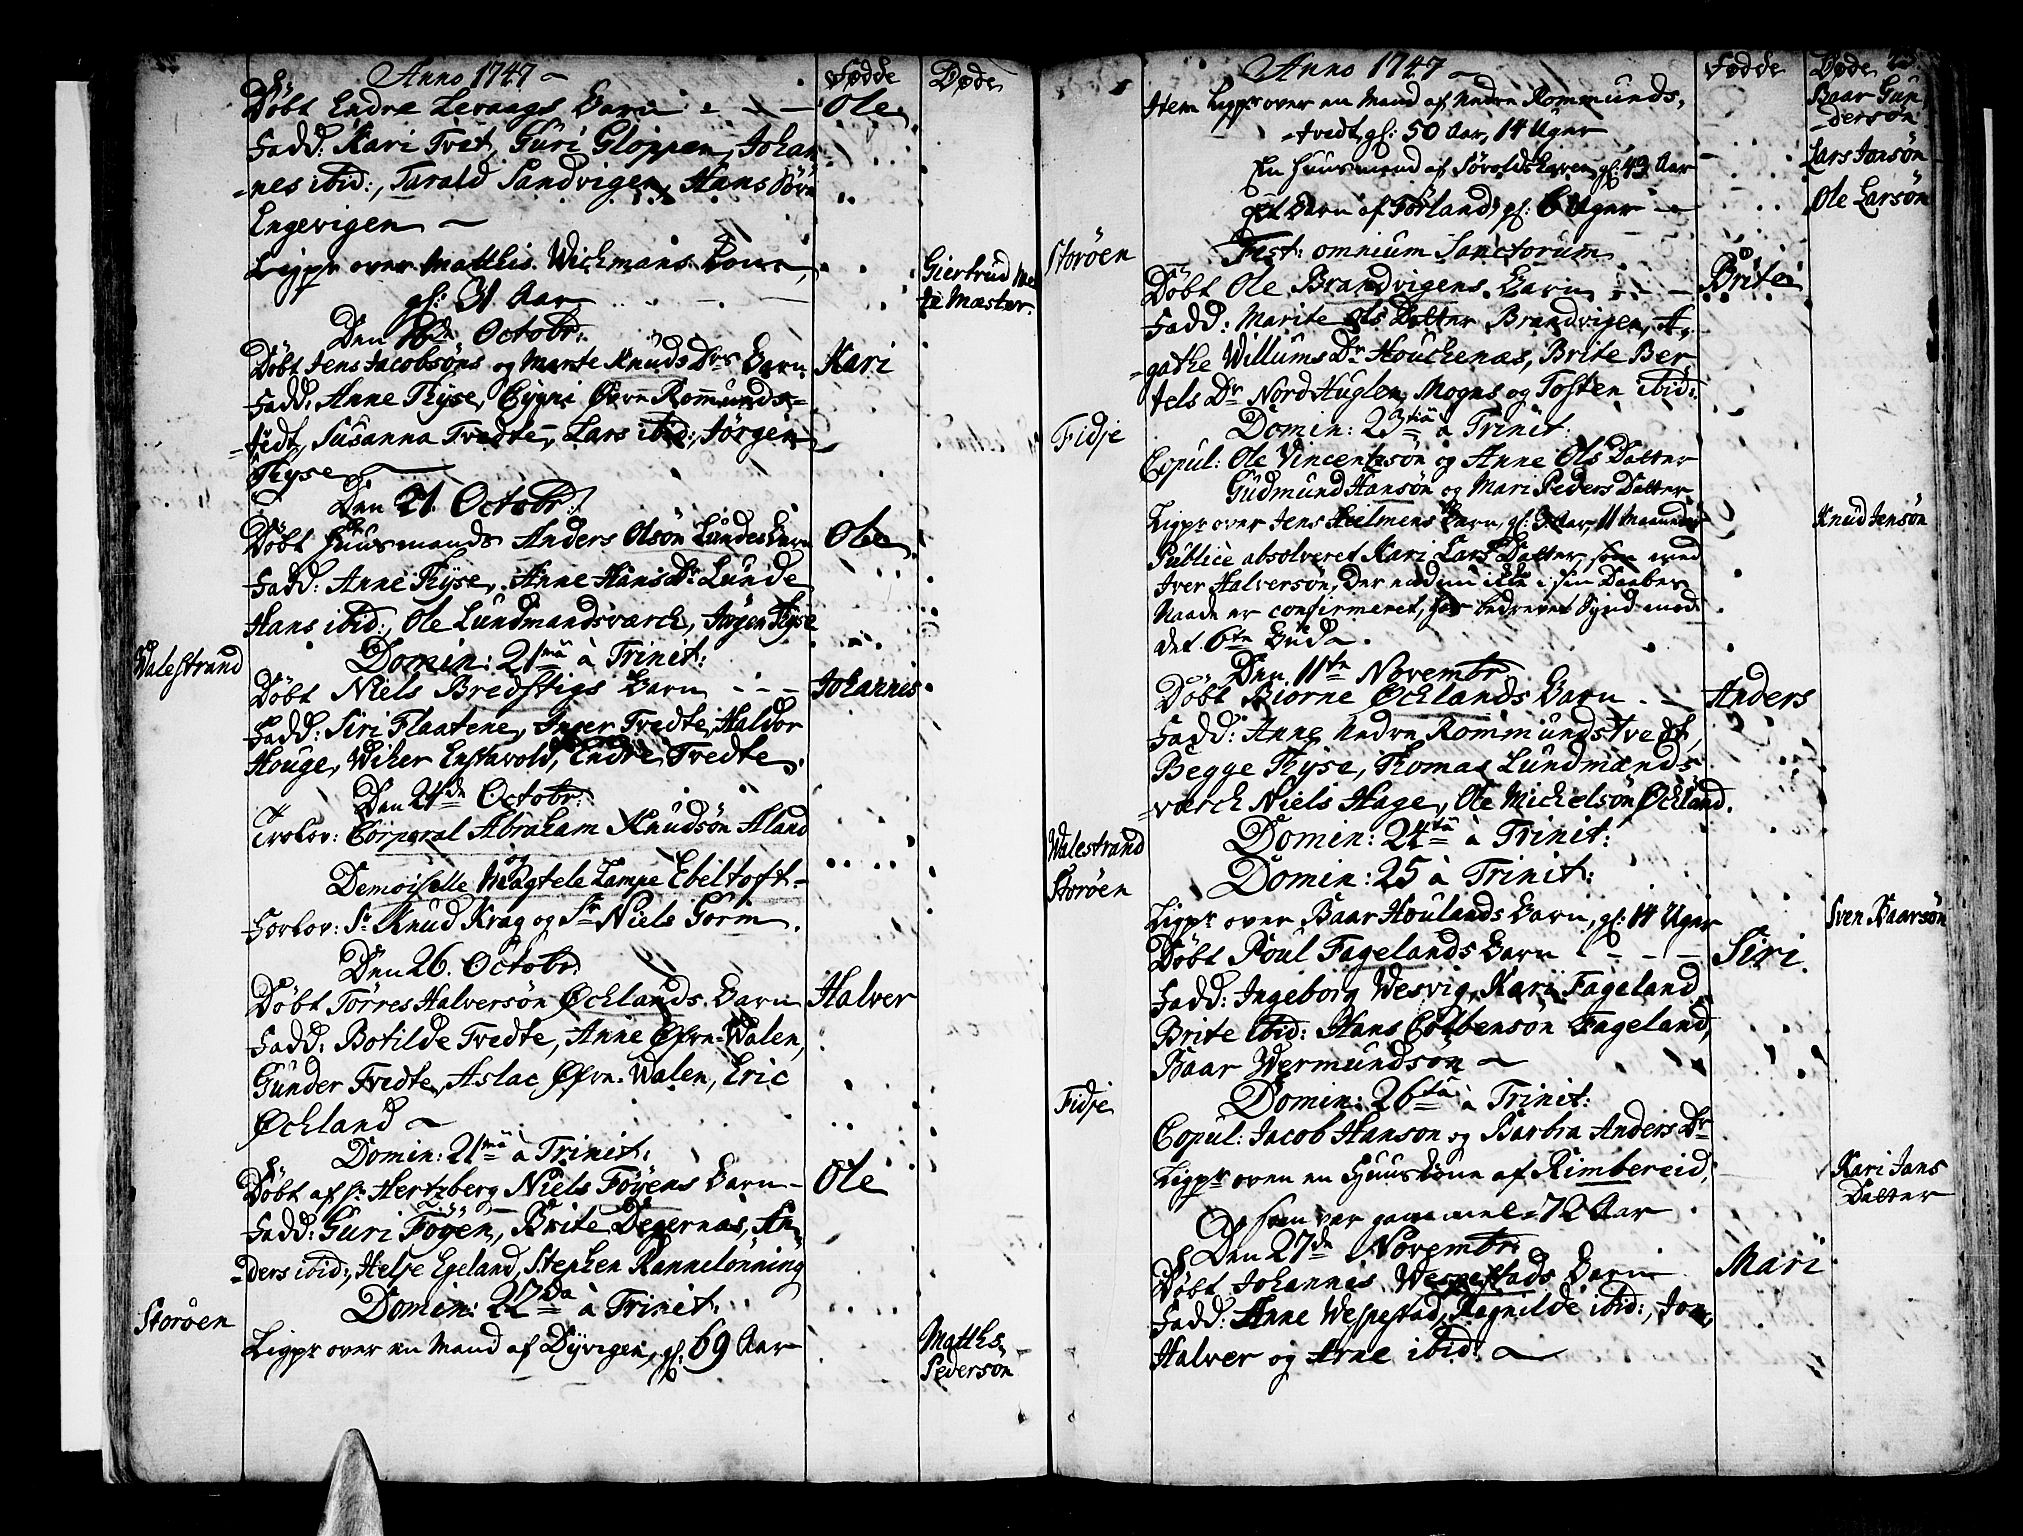 Anno 1747
Fødde
Døde
Døbt Endre Leraags Barn
Ole
Fadd: Kari Tvet, Guri Gloppen, Johan-
nes ibid:, Tarald Sandvigen, Hans Sørn
Engevigen
Ligpr over Matthis Wichmans Kone,
gl: 31 Aar
Giertrud
Mæster.
Den Octobr:
Døbt Jens Jacobsøns og Marte Knuds Dr Barn
Kari
Fadd: Anne Thyse, Øvre Rommunds-
tvedt, Susanna Tvedte, Lars ibid:, Jørgen
Thyse
Den 21 Octobr:
Døbt Huusmands Anders Olsøn Lundes Barn
Ole
Fadd: Anne Thyse, Anne Hans Dr Lunde
Hans ibid:, Ole Lundmandsværch, Jørgen Thyse
Walestrand
Domin: 21mâ à Trinit:
Døbt Niels Bredstigs Barn
Johannes
Fadd: Siri Flaatene, Inger Tvedte, Haldor
Houge, Wiker Enstavold, Endre Tvedte.
Den 24de Octobr:
Trolov: Corporal Abraham Knudsøn Aland
og
Demoiselle Magtele Lampe Ebeltoft
Forlov: Sr Knud Krag og Sr Niels Gorm.
Den 26. Octobr:
Døbt Tørres Halversøn Øchlands Barn
Halver
Fadd: Botilde Tvedte, Anne Øfvn-Walen,
Gunder Tvedte, Aslac Øfvn-Walen, Eric
Øchland
Domin: 21mâ à Trinit:
Døbt af Hr Hertzberg Niels Føyens Barn
Ole
Fadd: Guri Føyen, Brite Degernæs, An-
ders ibid:, Helje Egeland, Stephen Rannelønning
Storøen
Domin: 22da à Trinit:
Ligpr over en Mand af Dyvigen, gl: 69 Aar
Matths
Pedersøn
Anno 1747
Fødde
Døde
Item Ligpr over en Mand af Nedre Rommunds-
tvedt, gl: 50 Aar, 14 Uger
Baar Gun-
dersøn
En Huusmand af gl: 49 Aar
Lars Jonsøn
Et Barn af Førland, gl: 6 Uger
Ole Larsøn
Storøen
Fest: omnium Sanctorum
Døbt Ole Brandvigens Barn
Brite
Fadd: Marite Ols Datter Brandvigen, A-
gathe Willums Dr Houchenæs, Brite Ber-
tels Dr Nord Huglen, Mogns og Tosten ibid:
Fidje
Domin: 23tiâ à Trinit:
Copul: Ole Vincentsøn og Anne Ols Datter
Gudmund Hansøn og Mari Peders Datter
Ligpr over Jens Hielmens Barn, gl: 3 Aar, 11 Maaneder
Knud Jensøn
Publicè absolveret Kari Lars Datter, som med
Iver Halversøn, der endnu ikke i sin Daabes
Naade er confirmeret, har bedrevet Synd mod
det 6te Bud.
Den 11te Novembr.
Døbt Biorne Øchlands Barn
Anders
Fadd: Anne Nedre Rommundstvedt,
Begge Thyse, Thomas Lundmands-
værch Niels Hage, Ole Michelsøn Øchland.
Walestrand
Domin: 24tâ à Trinit:
Storøen
Domin: 25 à Trinit:
Ligpr over Baar Houlands Barn, gl: 14 Uger
Sven Baarsøn
Døbt Poul Fagelands Barn
Siri
Fadd: Ingeborg Wesvig, Kari Fageland
Brite ibid: Hans Colbensøn Fageland,
Baar Wermundsøn
Fidje
Domin: 26tâ à Trinit:
Copul: Jacob Hansøn og Barbra Anders Dr
Ligpr over en Huuskone af Rimbereid,
Kari Jans
Datter
som var gammel 72 Aar
Den 27de Novembr:
Døbt Johannes Wespestads Barn
Mari
Fadd: Anne Wespestad, Ragnilde ibid:, Jon,
Halver og Arne ibid: